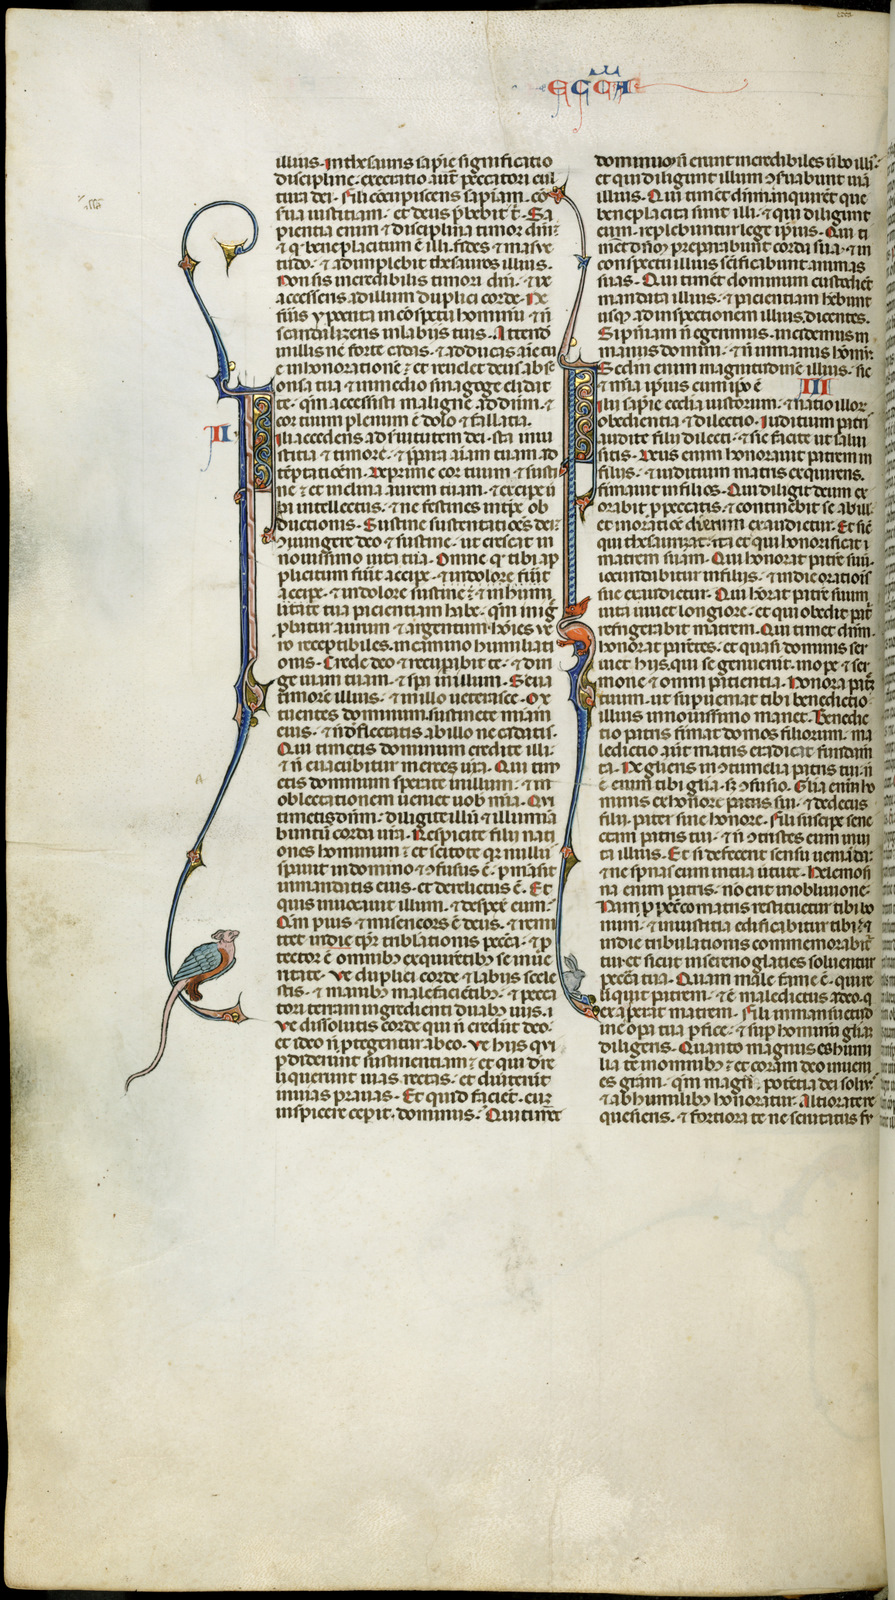 ECCA
illius. In thesauris sapīe significatio
discipline. execratio aūt peccatori cul
tura dei. Fili cōcupiscens sapīam. cō
serua iustitiam. et deus p̄bebit t̄. Sa
pientia enim & disciplina timor dn̄i:
& q̄ beneplacitum ē illi. fides & māsue
tudo. & adimplebit thesauros illius.
Non sis incredibilis timori dn̄i. & ne
accessens ad illum duplici corde. Ne
in labijs tuis. Attend
in illis ne forte cadas. & adducas aīe tue
inhonoratione. et reuelet deus abs
onsa tua & in medio sinagoge elidat
te. qm̄ accessisti maligne ad dūm. &
cor tuum plenum ē dolo & fallatia.
II
ili accedens ad seruitutem dei. sta in iu
stitia & timore. & p̄para aīam tuam ad
tēptationem. Deprime cor tuum & susti
ne & et inclina aurem tuam. & excipe ū
ba intellectus. & ne festines in tp̄e ob
ductionis. Sustine sustentatiōēs dei:
ꝯiungere deo & sustine. ut crescat in
nouissimo uita tua. Omne q̄ tibi ap
plicitum fuīt accipe. & in dolore
& in humi
litate tua pacientiam habe. qm̄ in ig
probatur aurum & argentum. hoīes ue
ro receptibiles in camino humiliati
onis. Crede deo & recupabit te. & diri
ge uiam tuam. & spa in illum. Serua
timorē illius. & in illo ueterasce.
tuentes dominum. sustinete miām
eius. & nō deflectatis ab illo ne cadatis.
Qui timetis dominum credite illi.
& n̄ euacuabitur merces ur̄a. Qui tim
etis dominum sperate in illum. & in
oblectationem ueniet uob mīa. Qui
timetis dn̄m. diligite illū & illumina
buntur corda ur̄a. Respicite filij nati
ones hominum & et scitote qr nullus
sperauit in domino & ꝯfusus ē. pmāsit
in mandatis eius. et derelictus ē. Et
quis inuocauit illum. & despex̄ eum.
Qm̄ pius & misericors ē deus. & remi
ttet in die tribulationis peccā. & p
tector ē omnibꝫ exquirētibꝫ se in ue
ritate. Ve duplici corde & labijs scele
stis. & manibꝫ malefaciētibꝫ. & pecca
tori terram ingredienti duabꝫ uiis.
ve dissolutis corde qui n̄ credūt deo.
et ideo n̄ ptegentur ab eo. ve hijs qui
pdiderunt sustinentiam & et qui dere
liquerunt uias rectas. et diuterūt
in uias prauas. Et quid facient. cum
inspicere ceperit dominus. Qui timent
dominum n̄ erunt incredibiles ūbo illi.
et qui diligunt illum ꝯseruabunt uiā
illius. Qui timēt dn̄m inquirēt que
beneplacita sunt illi. & qui diligunt
eum. replebuntur lege ipsius. Qui ti
ment dn̄m preparabunt corda sua. & in
conspectu illius sc̄ificabunt animas
suas. Qui timēt dominum custodiēt
mandata illius. & pacientiam hēbunt
usqꝫ ad inspectionem illius. dicentes.
Si pn̄iam n̄ egerimus. incidemus in
manus domini. & n̄ in manus homin.
Secdm enim magnitudinē illius. sic
& mīa ipsius cum ipo ē
III
ilii sapīe ecclīa iustorum. & natio illor
obedientia & dilectio. Iuditium patris
audite filii dilecti. & sic facite ut salui
sitis. Deus enim honorauit patrem in
filijs. & iuditium matris exquirens.
firmauit in filios. Qui diligit deum ex
orabit p peccatis. & continebit se ab illis.
et in oratiōe dierum exaudietur. Et sic
qui thesaurizat. ita et qui honorificat
matrem suam. Qui honorat patrē suū.
iocundabitur in filijs. & in die oratiōis
sue exaudietur. Qui hōrat patrē suum
uita uiuet longiore. et qui obedit patī
refrigerabit matrem. Qui timet dn̄m.
honorat parētes. et quasi dominis ser
uiet hijs. qui se genuerint. in ope & ser
mone & omni pacientia. Honora patrē
tuum. ut supueniat tibi benedictio.
illius in nouissimo manet. Benedic
tio patris firmat domos filiorum. ma
ledictio aūt matris eradicat fundam
ta. Ne glieris in ꝯtumelia patris tui. n̄
ē enim tibi glīa. sꝫ ꝯfusio. Glīa enim ho
minis ex honore patris sui. & dedecus
filij. pater sine honore. Fili suscipe sene
ctam patris tui. & n̄ ꝯtristes eum in ui
ta illius. Et si defecerit sensu ueniā da:
& ne spnas eum in tua ūtute. Helemosi
na enim patris. nō erit in obliuione.
Nam p peccō matris restituetur tibi bo
num. & in iustitia edificabitur tibi. &
in die tribulationis commemorabit
tur et sicut in sereno glaties soluentur
peccā tua. Quam male fame ē. qui re
liquit patrem. & ē maledictus a deo. q
exasperat matrem. Fili in mansuetud
ine opa tua pfice. & sup hominū gliam
diligeris. Quanto magnus es humi
lia te in omnibꝫ & et coram deo inueni
es grām. qm̄ magn̄ potētia dei solius.
& ab humilibꝫ honoratur. Altiora te ne
quesieris. & fortiora te ne scrutatus fu